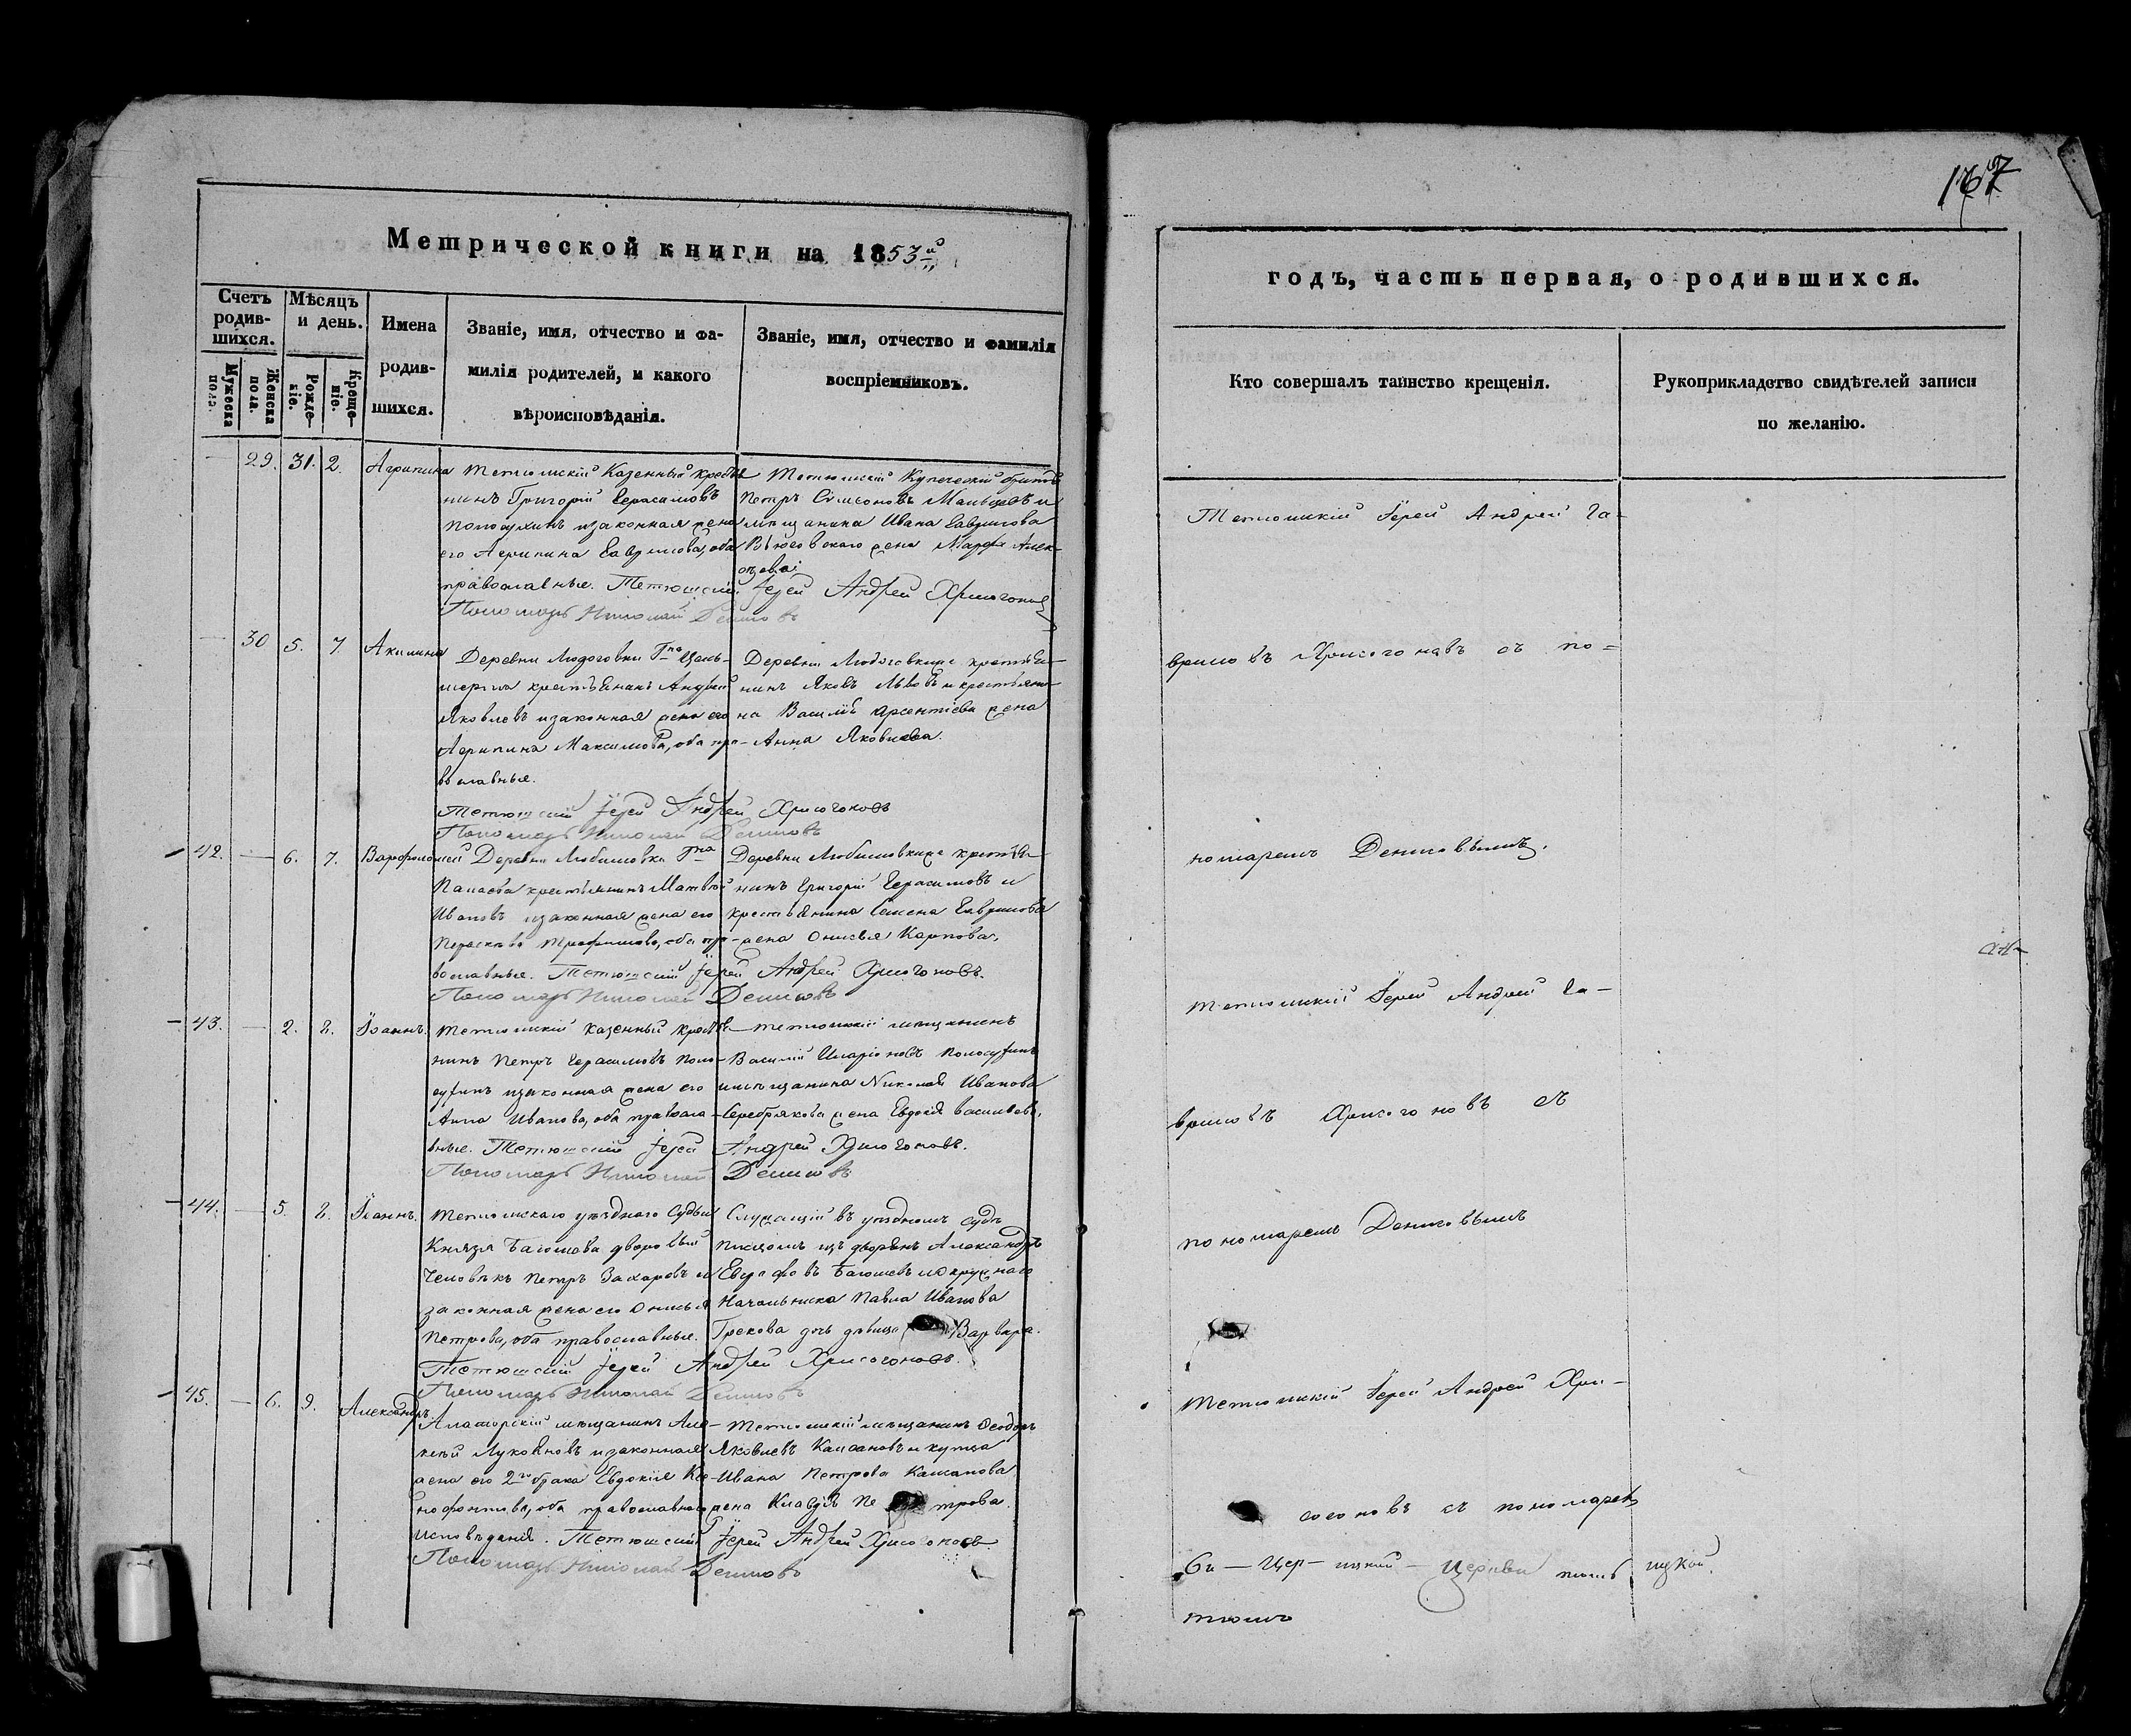 167
Метрической книги на 1853й
годъ, часть первая, о родившихся.
Счетъ родив-шихся.
Мужеска пола.
Женска пола.
Мѣсяцъ и день.
Рожде-ніе.
Креще-ніе.
Имена
родив-
шихся.
Званіе, имя, отчество и фа-
милія родителей, и какого
вѣроисповѣданія.
Званіе, имя, отчество и фамилія
воспріемниковъ.
Кто совершалъ таинство крещенія.
Рукоприкладство свидѣтелей записи
по желанію.
— 29. 31. 2. Агрипина
Тетюшскій Казенный крестья
нинъ Григорій Герасимовъ
Полосухинъ и законная жена
его Агрипина Гаврилова, оба
православные. Тетюшскій Іерей Андрей Хрисогоновъ
Пономарь Николай Денисовъ
Тетюшскій Купеческій братъ
Петръ Симеоновъ и
мѣщанина Ивана Гаврилова
жена Марфа Алек-
сѣева.
— 30 5. 7 Акилина
Деревни Гна
крестьянинъ Андрей
Яковлевъ и законная жена его
Агрипина Максимова, оба пра-
вославные.
Тетюшскій Іерей Андрей Хрисогоновъ
Пономарь Николай Денисовъ
Деревни крестья-
нинъ Яковъ Львовъ и крестьяни-
на Василія Арсентіева жена
Анна Яковлева.
42. — 6. 7. Варфоломей
Деревни Любимовки Гна
крестьянинъ Матвей
Ивановъ и законная жена его
Параскева Трофимова, оба пра-
вославные. Тетюшскій Іерей Андрей Хрисогоновъ.
Пономарь Николай Денисовъ
Деревни Любимовки же крестья-
нинъ Григорій Герасимовъ и
крестьянина Семена Гаврилова
жена Онисья Карпова.
43. — 2. 8. Іоаннъ.
Тетюшскій казенный крестья-
нинъ Петръ Герасимовъ Поло-
сухинъ и законная жена его
Анна Иванова, оба православ-
ные. Тетюшскій Іерей Андрей Хрисогоновъ.
Пономарь Николай Денисовъ
тетюшскій мѣщанинъ
Василій Иларіоновъ Полосухинъ
и мѣщанина Николая Иванова
Серебрякова жена Евдокія Васильева.
44. — 5. 8. Іоаннъ.
Тетюшскаго уѣзднаго Судьи
Князя дворовый
человѣкъ Петръ Захаровъ и
законная жена его Онисья
Петрова, оба православные.
Тетюшскій Іерей Андрей Хрисогоновъ.
Пономарь Николай Денисовъ
Служащій въ уѣздномъ судѣ
писцомъ изъ дворянъ Александръ
Евграфовъ и окружнаго
Начальника Павла Иванова
Грекова дочь дѣвица Варвара.
45. — 6. 9. Александръ.
Алаторскій мѣщанинъ Але-
ксѣй Лукояновъ и законная
жена его 2го брака Евдокія Ксе-
нофонтова, оба православнаго
исповѣданія. Тетюшскій Іерей Андрей Хрисогоновъ
Пономарь Николай Денисовъ
Тетюшскій мѣщанинъ Феодоръ
Яковлевъ и купца
Ивана Петрова
жена Клавдія Петрова.
Тетюшскій Іерей Андрей Га-
вриловъ Хрисогоновъ съ по=
номаремъ Денисовымъ.
Тетюшскій Іерей Андрей Га-
вриловъ Хрисогоновъ съ
пономаремъ Денисовымъ
Тетюшскій Іерей Андрей Хри-
согоновъ съ пономаремъ